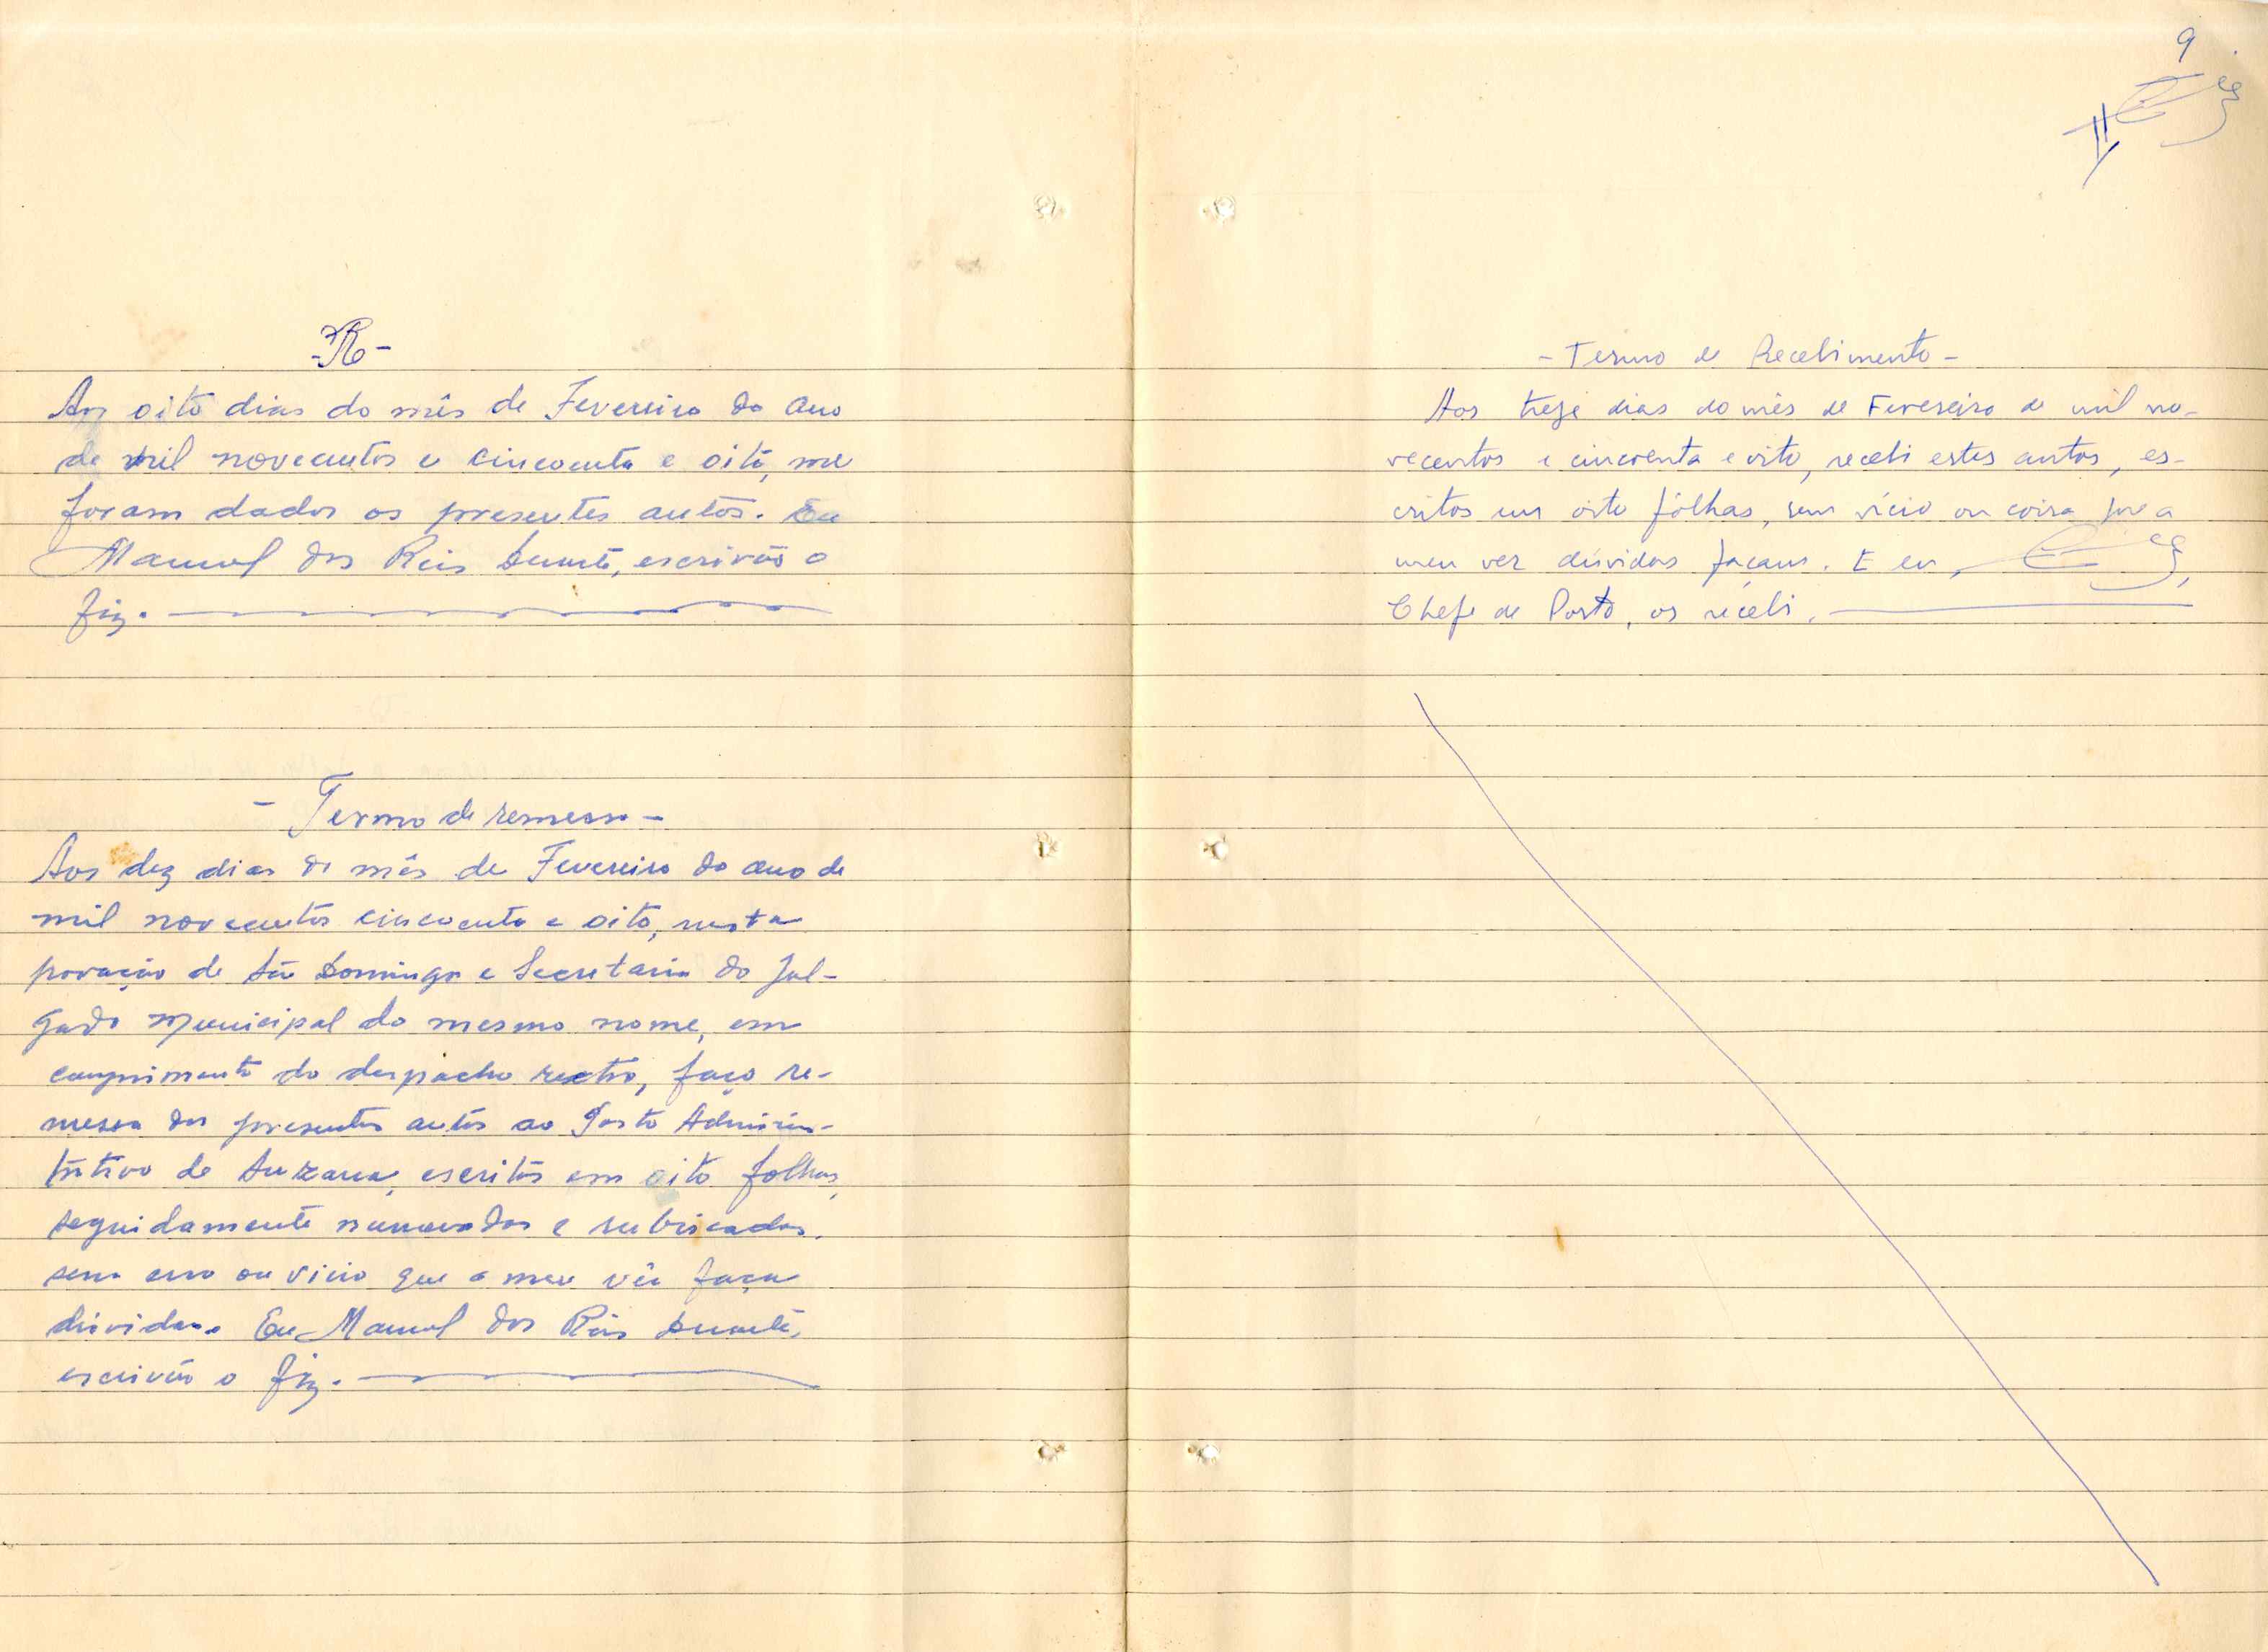 -R-
Aos oito dias do mês de Fevereiro do ano
de mil novecentos e cincoenta e oito, me
foram dados os presentes autos. Eu
Manuel dos Reis Duarte, escrivão o
fiz.
- Termo de remessa -
Aos dez dias do mês de Fevereiro do ano de
mil novecentos cincoenta e oito, nesta
povoação de São Domingos e Secretaria do Jul-
gado Municipal do mesmo nome, em
cumprimento do despacho rectro, faço re-
messa dos presentes autos ao Posto Adminis-
trativo de escritos em oito folhas,
seguidamente numeradas e rubricadas,
sem erro ou vicio que a meu vêr faça
dúvidas. Eu Manuel dos Reis Duarte,
escrivão o fiz.
9
- Termo de Recebimento -
Aos treze dias do mês de Fevereiro de mil no-
vecentos e cincoenta e oito, recebi estes autos, es-
critos em oito fôlhas, sem vício ou coisa que a
meu ver dúvidas façam. E eu,
Chefe de Posto, os recebi.